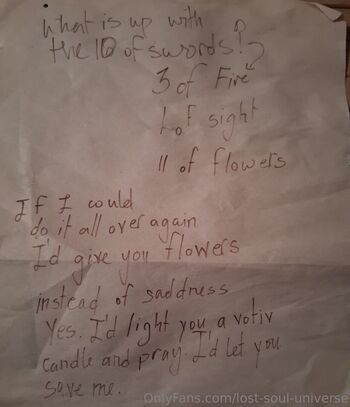 What is up with
the 10 of swords!?
3 of Fire
1 of sight
11 of flowers
If I could
do it all over again
I'd give you flowers
instead of saddness
Yes. I'd light you a votiv
candle and pray. I'd let you
save me.
OnlyFans.com/lost-soul-universe